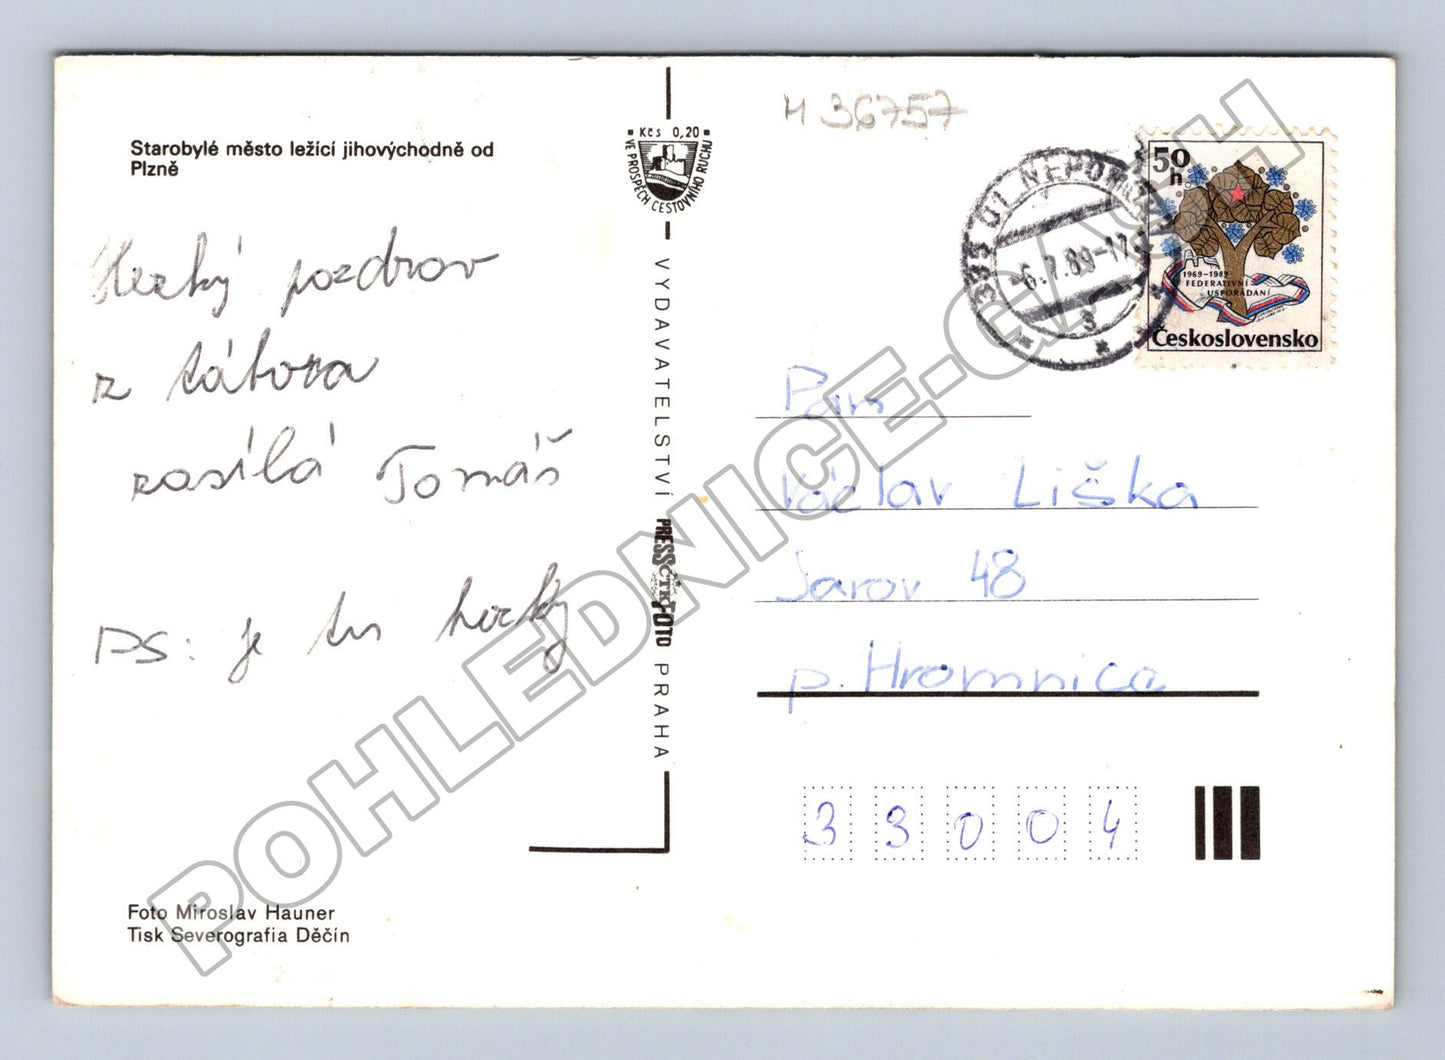 Starobylé město ležící jihovýchodně od
Plzně
Hezký pozdrav
z tábora
zasílá Tomáš
PS: je tu hezky
Foto Miroslav Hauner
Tisk Severografia Děčín
Kčs 0,20
VE PROSPĚCH CESTOVNÍHO RUCHU
VYDAVATELSTVÍ PRESSFOTO PRAHA
ČTK
M 36757
335 01 NEPOMUK
-6.7.89-17
50
h
1969-1989
FEDERATIVNÍ
USPOŘÁDÁNÍ
Československo
Pan
Václav Liška
Jarov 48
p. Hromnica
33004
POHLEDNICE-GACH